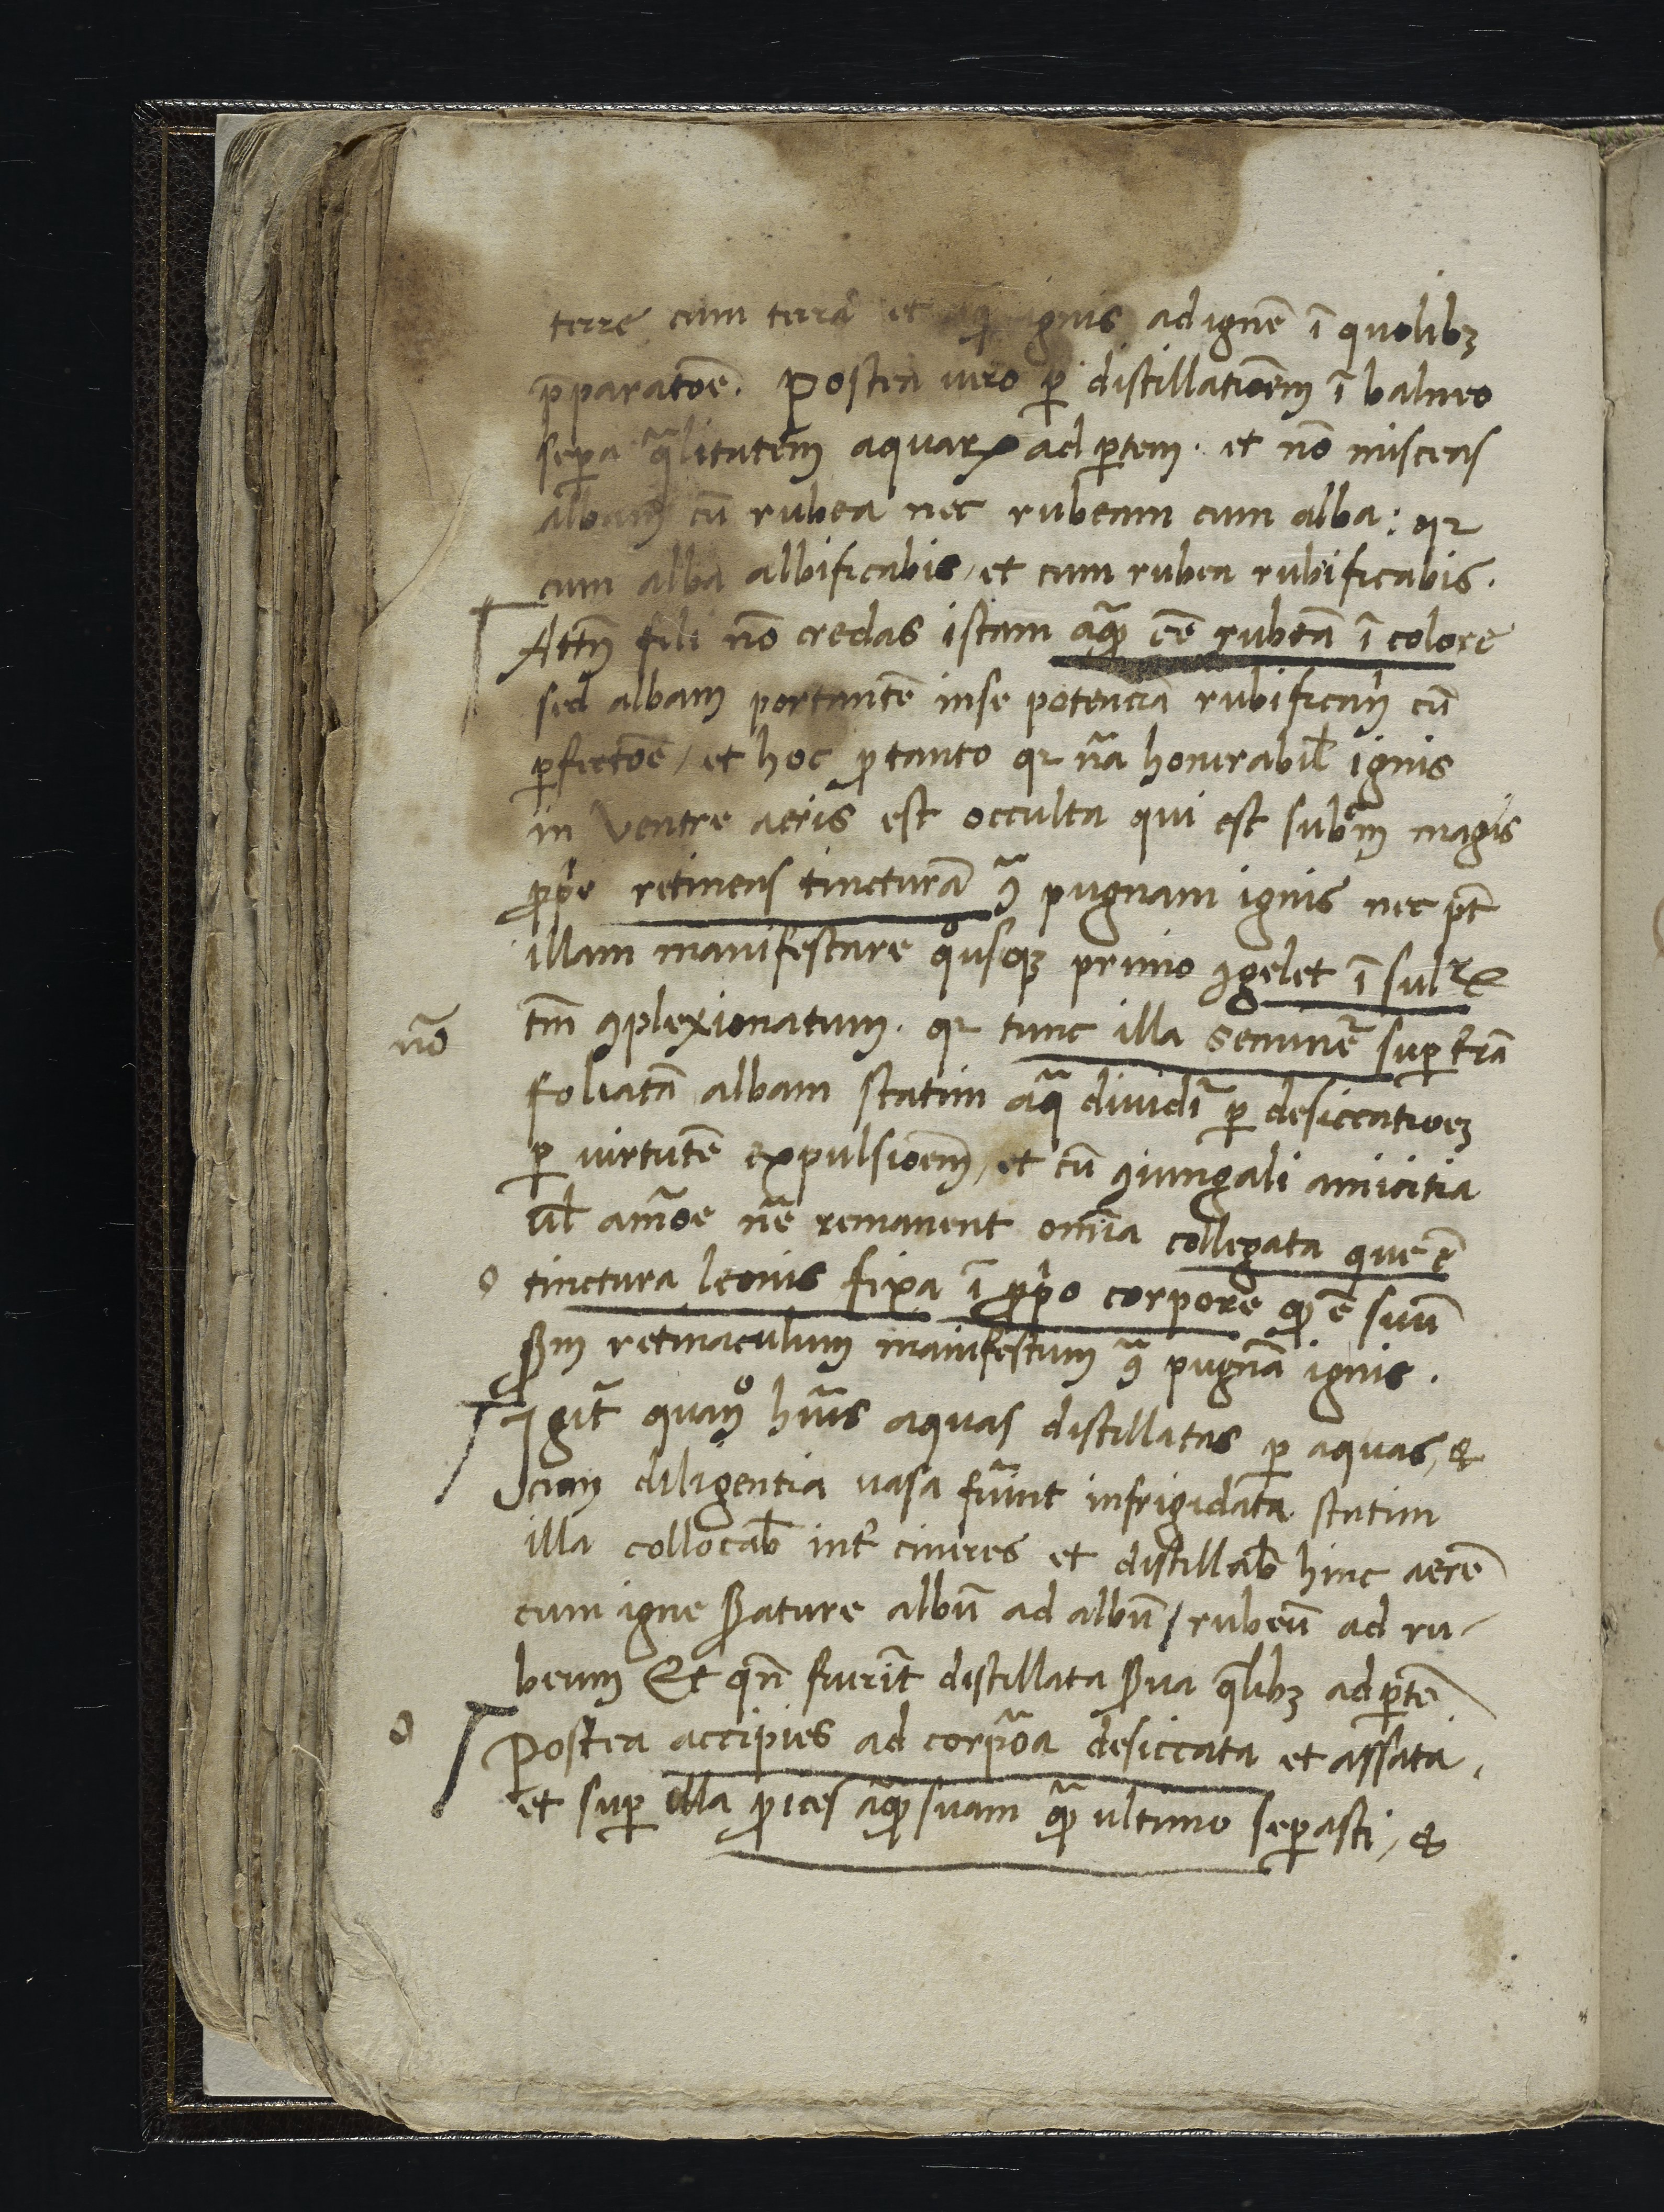 terre cum terra et aq̄ ignis ad ignē ī quolibꝫ
p̄paratōe. Postea uero ꝑ distillatiōem ī balneo
seꝑa q̄litatem aquaꝝ ad ꝑtem. et nō misceas
albam cū rubea nec rubeam cum alba: qꝛ
cum alba albificabis, et cum rubea rubificabis.
Attn̄ fili nō credas istam aq̄ȝ eē rubeā ī colore
sed albam portantē in se potenciā rubifican̄ cū
ꝑfectōe, et hoc ꝓ tanto qꝛ nāa honorabil̄ ignis
in ventre aeris est occulta qui est subm̄ magis
ꝓpe retinens tincturā ꝯ̄ pugnam ignis nec pt̄
illam manifestare quousqꝫ primo ꝯgelet ī sulr̄
nō
tm̄ ꝯplexionatum. qꝛ tunc illa seminet̄ suꝑ trā
foliatā albam statim aq̄ diuidit̄ ꝑ desiccatioeꝫ
ꝑ uirtutē expulsiōem, et cū ꝯiungali amicitia
ul̄ amōe nē remanent omīa collegata que ē
tinctura leonis fixa ī ꝓpo corpore qȝ ē suū
ꝓm retinaculum manifestum ꝯ̄ pugnā ignis.
Igit̄ quan̊ hūis aquas distillatas ꝑ aquas, &
cum diligentia uasa fūint infrigidata statim
illa collocab̄ int̄ cineres et distillab̄ hinc aerē
cum igne s̄ature albū ad albū / rubeū ad ru-
beum Et qn̄ fuerit̄ distillata s̄ua q̄libꝫ ad ꝑtē
Postea accipies ad corpōa desiccata et assata.
et suꝑ illa ꝓices aq̄ȝ suam q̄ȝ ultimo seꝑasti, &